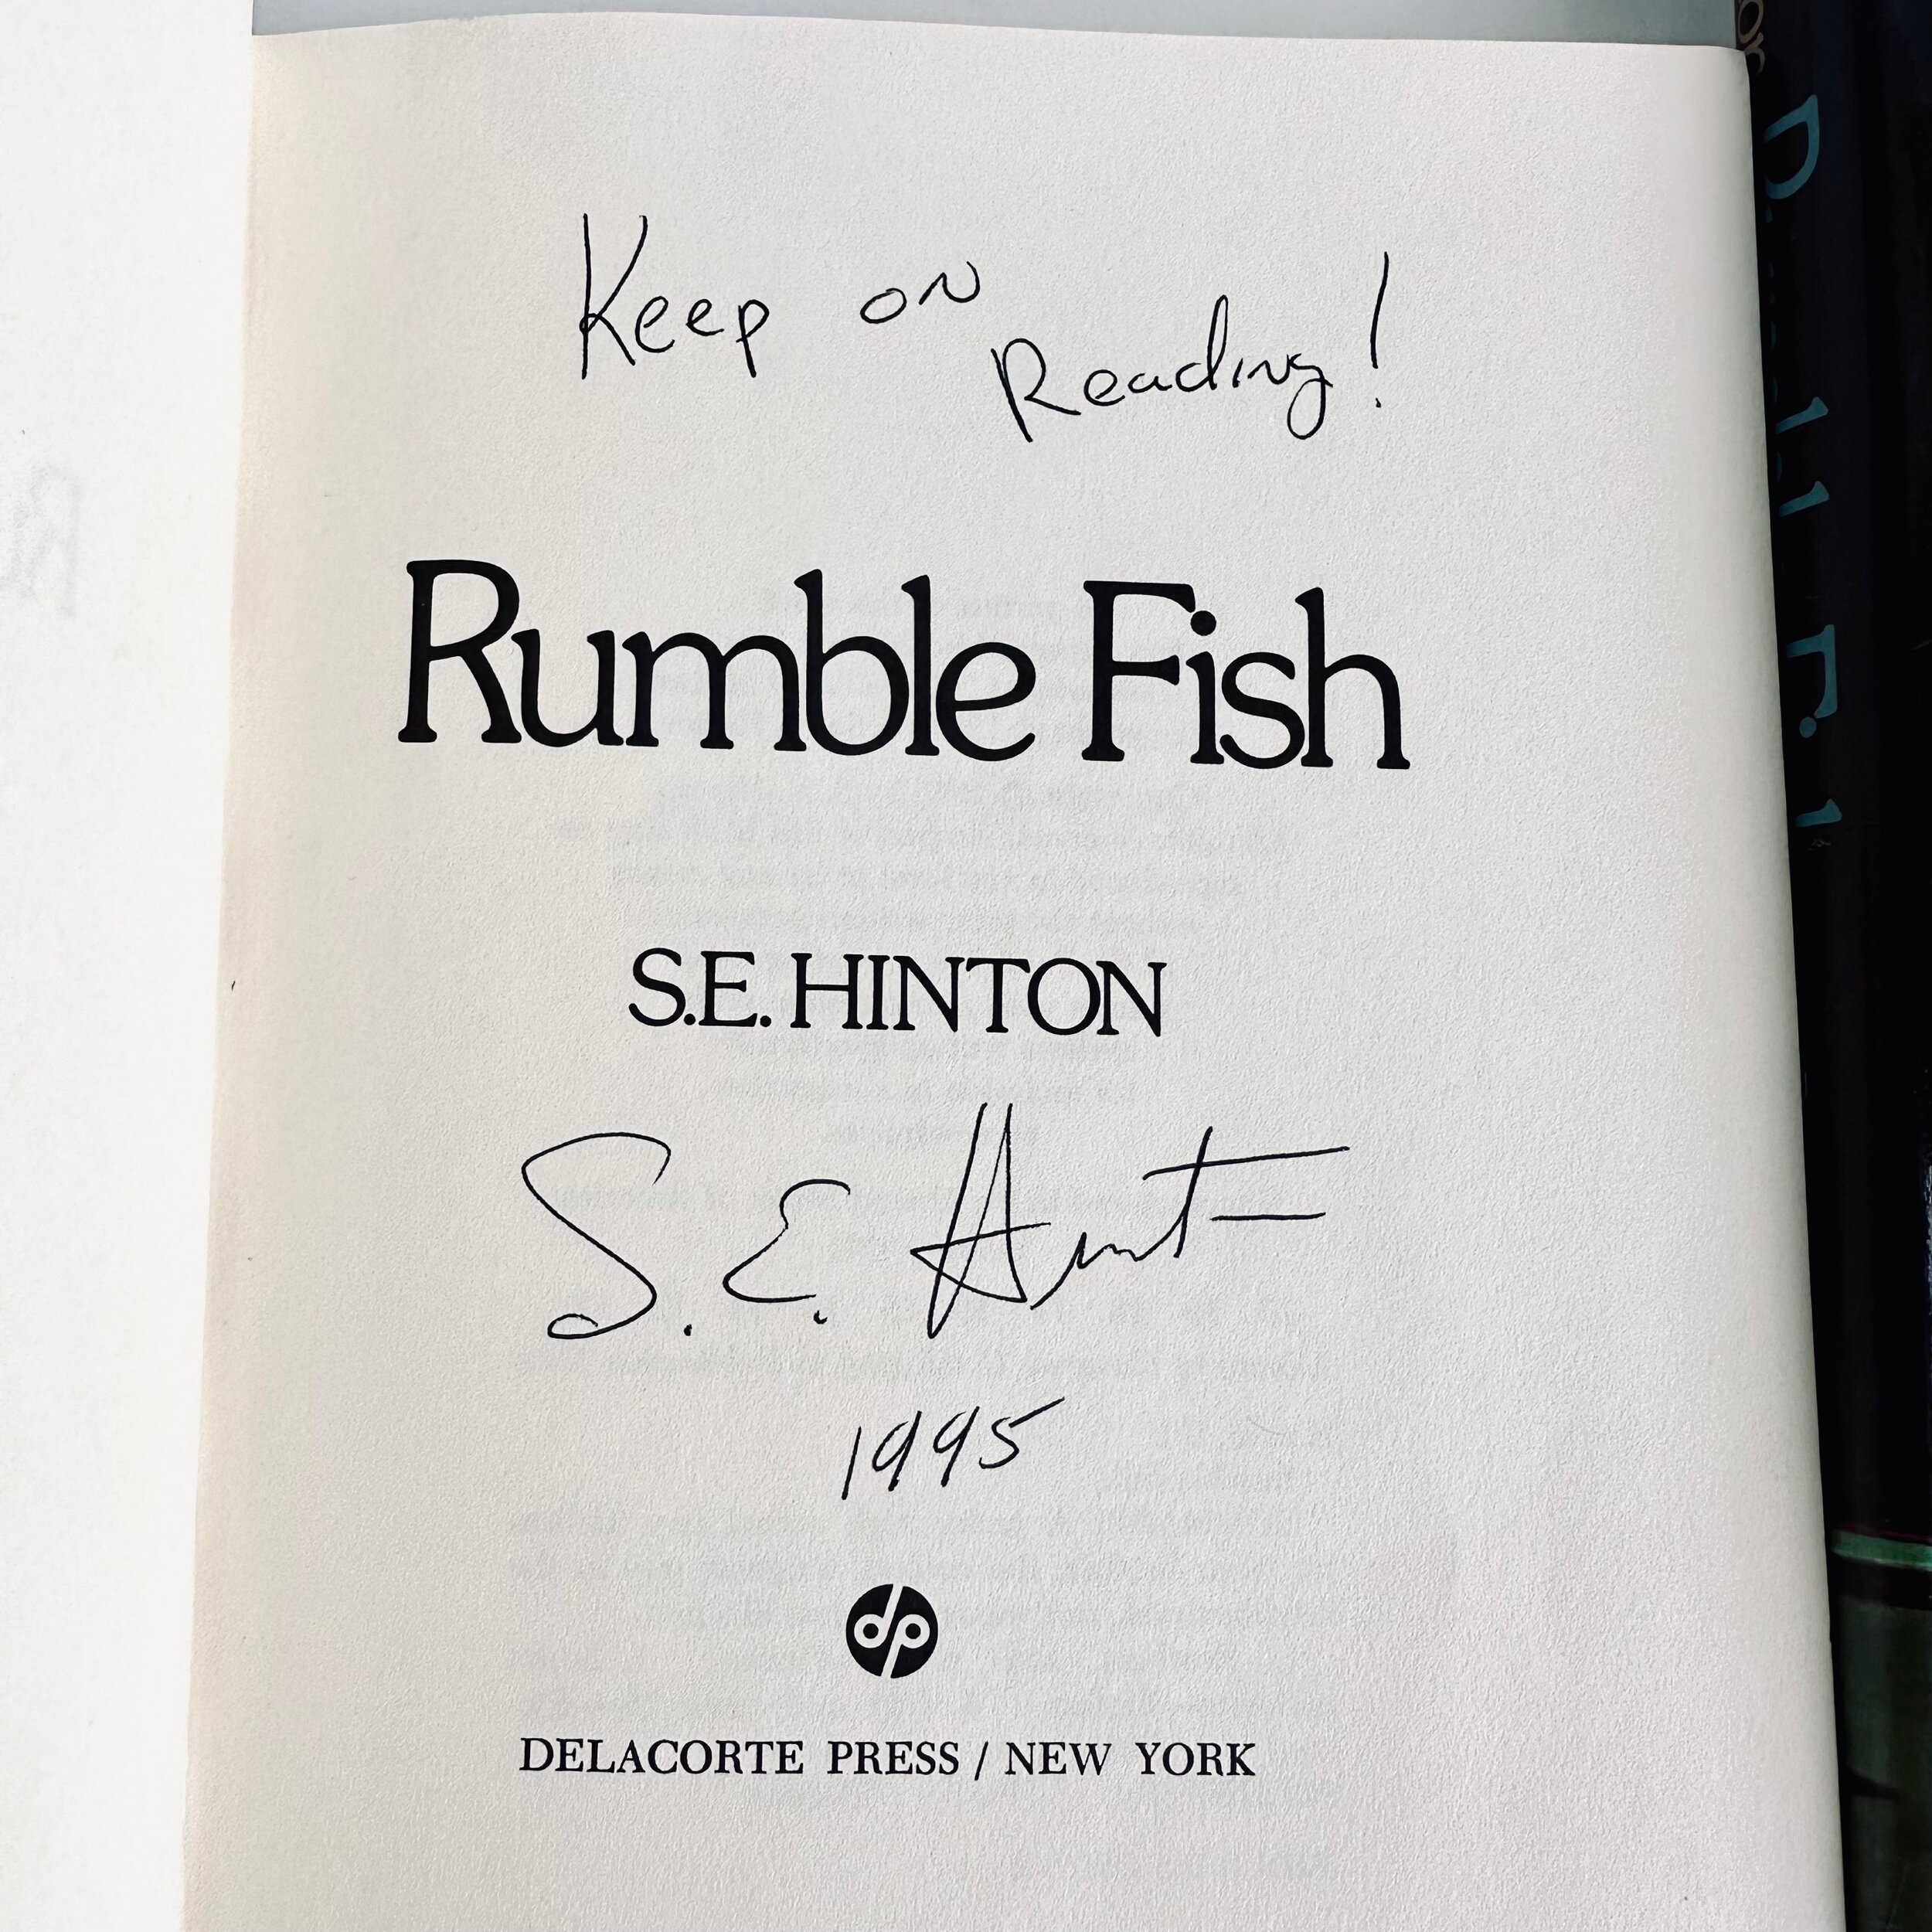 Keep on
Reading!
Rumble Fish
S.E. HINTON
S. E. Hinton
1995
dp
DELACORTE PRESS / NEW YORK